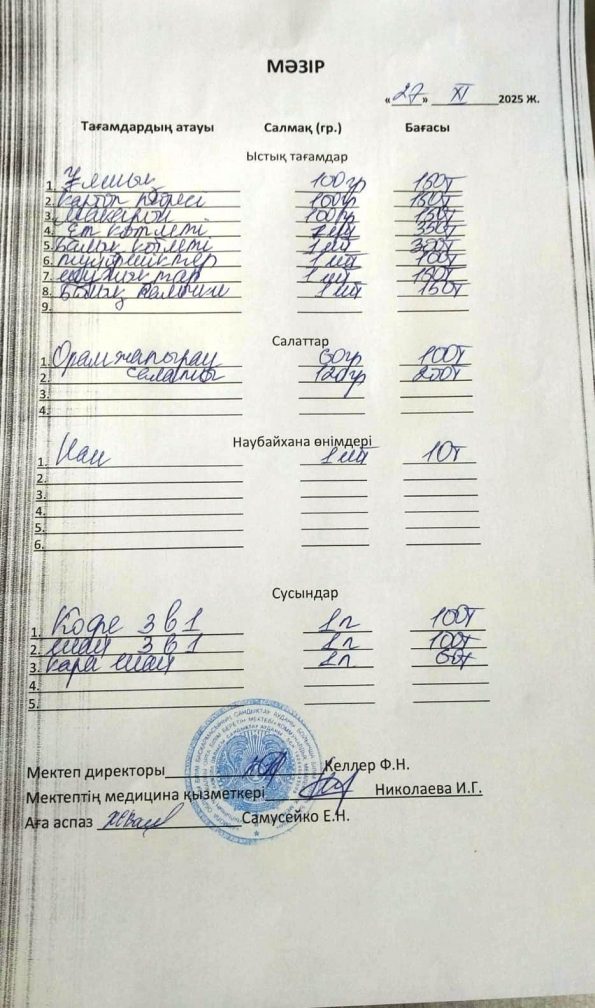 МӘЗІР
«27» XI 2025 Ж.
Тағамдардың атауы Салмақ (гр.) Бағасы
Ыстық тағамдар
1. 100гр 150т
2. картоп пюресі 100гр 150т
3. Макарон 100гр 150т
4. Ет котлеті 1шт 350т
5. Балық котлеті 1шт 300т
6. 1шт 100т
7. 1шт 150т
8. 1шт 150т
9.
Салаттар
1. Орамжапырақ 60гр 100т
2. салаты 120гр 200т
3.
4.
Наубайхана өнімдері
1. Нан 1шт 10т
2.
3.
4.
5.
6.
Сусындар
1. Кофе 3 в 1 1п 100т
2. шай 3 в 1 1п 100т
3. кара шай 1п 60т
4.
5.
Мектеп директоры Келлер Ф.Н.
Мектептің медицина қызметкері Николаева И.Г.
Аға аспаз Самусейко Е.Н.